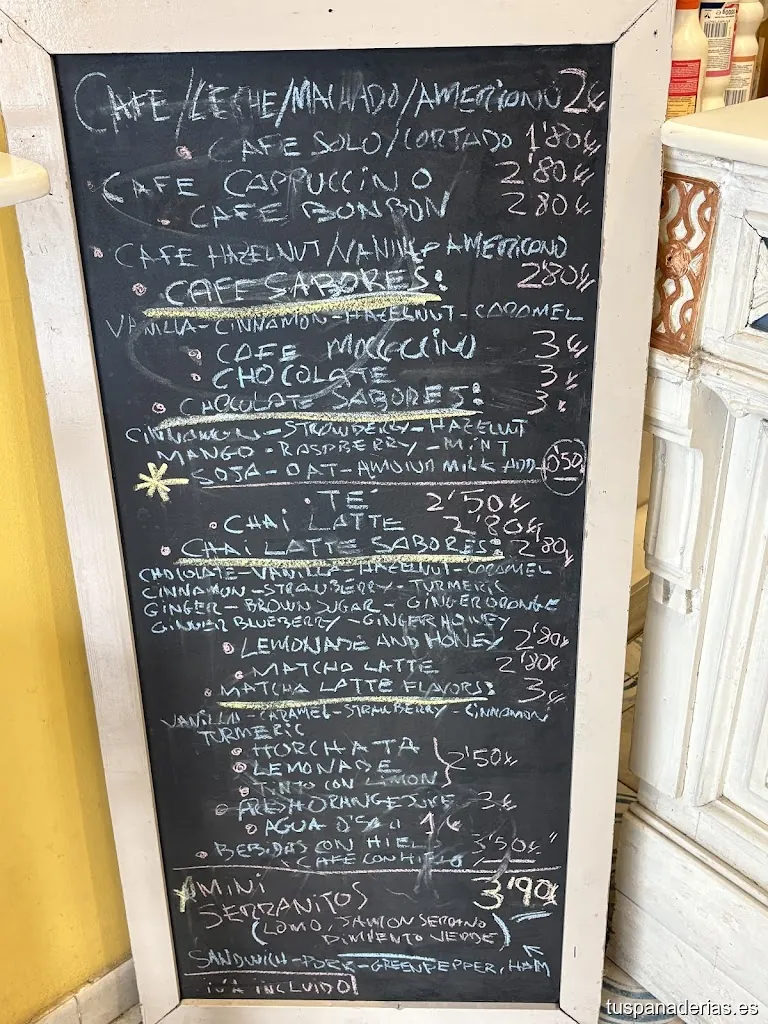 CAFE/LECHE/MACHADO/AMERICANO 2€
CAFE SOLO/CORTADO 1'80€
CAFE CAPPUCCINO 2'80€
CAFE BONBON 2'80€
CAFE HAZELNUT/VANILLA AMERICANO
CAFE SABORES: 2'80€
VANILLA-CINNAMON-HAZELNUT-CARAMEL
CAFE MOCCUCCINO 3€
CHOCOLATE 3€
CHOCOLATE SABORES: 3€
CINNAMON-STRAWBERRY-HAZELNUT
MANGO-RASPBERRY-MINT
SOJA-OAT-ALMOND MILK ADD 0'50
TE 2'50€
CHAI LATTE 2'80€
CHAI LATTE SABORES: 2'80€
CHOCOLATE-VANILLA-HAZELNUT-CARAMEL
CINNAMON-STRAWBERRY-TURMERIC
GINGER-BROWN SUGAR-GINGER ORANGE
GINGER BLUEBERRY-GINGER HONEY
LEMONADE AND HONEY 2'80€
MATCHA LATTE 2'80€
MATCHA LATTE FLAVORS: 3€
VANILLA-CARAMEL-STRAWBERRY-CINNAMON
TURMERIC
HORCHATA
LEMONADE 2'50€
TINTO CON LIMON
FRESH ORANGE 3€
AGUA 1€
BEBIDAS CON HIELO 3'50€
CAFE CON HIELO
MINI
SERRANITOS 3'90
(LOMO, JAMON SERRANO
PIMIENTO VERDE)
SANDWICH-PORK-GREENPEPPER, HAM
IVA INCLUIDO!
tuspanaderias.es